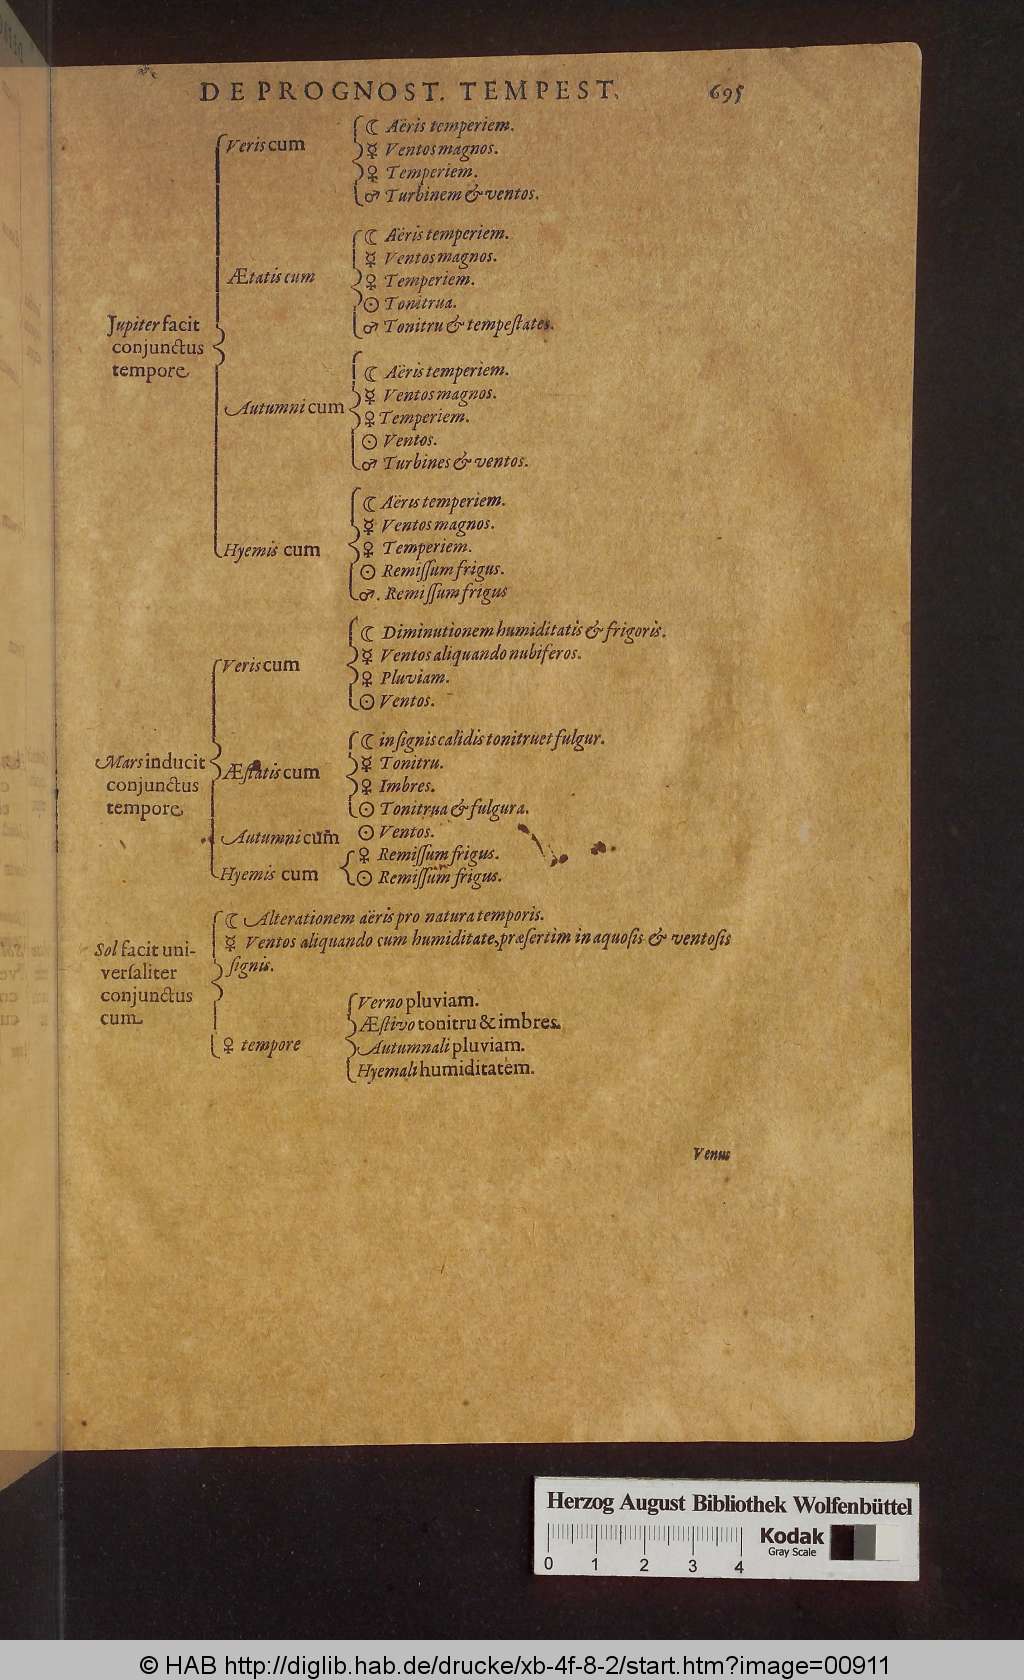 DE PROGNOST. TEMPEST. 695
Veris cum
☾ Aëris temperiem.
☿ Ventos magnos.
♀ Temperiem.
♂ Turbinem & ventos.
Jupiter facit
conjunctus
tempore
Ætatis cum
☾ Aëris temperiem.
☿ Ventos magnos.
♀ Temperiem.
☉ Tonitrua.
♂ Tonitru & tempeſtates.
Autumni cum
☾ Aëris temperiem.
☿ Ventos magnos.
♀ Temperiem.
☉ Ventos.
♂ Turbines & ventos.
Hyemis cum
☾ Aëris temperiem.
☿ Ventos magnos.
♀ Temperiem.
☉ Remiſſum frigus.
♂. Remiſſum frigus
Mars inducit
conjunctus
tempore
Veris cum
☾ Diminutionem humiditatis & frigoris.
☿ Ventos aliquando nubiferos.
♀ Pluviam.
☉ Ventos.
Æſtatis cum
☾ in ſignis calidis tonitru et fulgur.
☿ Tonitru.
♀ Imbres.
☉ Tonitrua & fulgura.
Autumni cum̃
☉ Ventos.
Hyemis cum
♀ Remiſſum frigus.
☉ Remiſſum frigus.
Sol facit uni-
verſaliter
conjunctus
cum
☾ Alterationem aëris pro natura temporis.
☿ Ventos aliquando cum humiditate, præſertim in aquoſis & ventoſis
ſignis.
♀ tempore
Verno pluviam.
Æſtivo tonitru & imbres.
Autumnali pluviam.
Hyemali humiditatem.
Venus
Herzog August Bibliothek Wolfenbüttel
0 1 2 3 4
Kodak
Gray Scale
© HAB http://diglib.hab.de/drucke/xb-4f-8-2/start.htm?image=00911